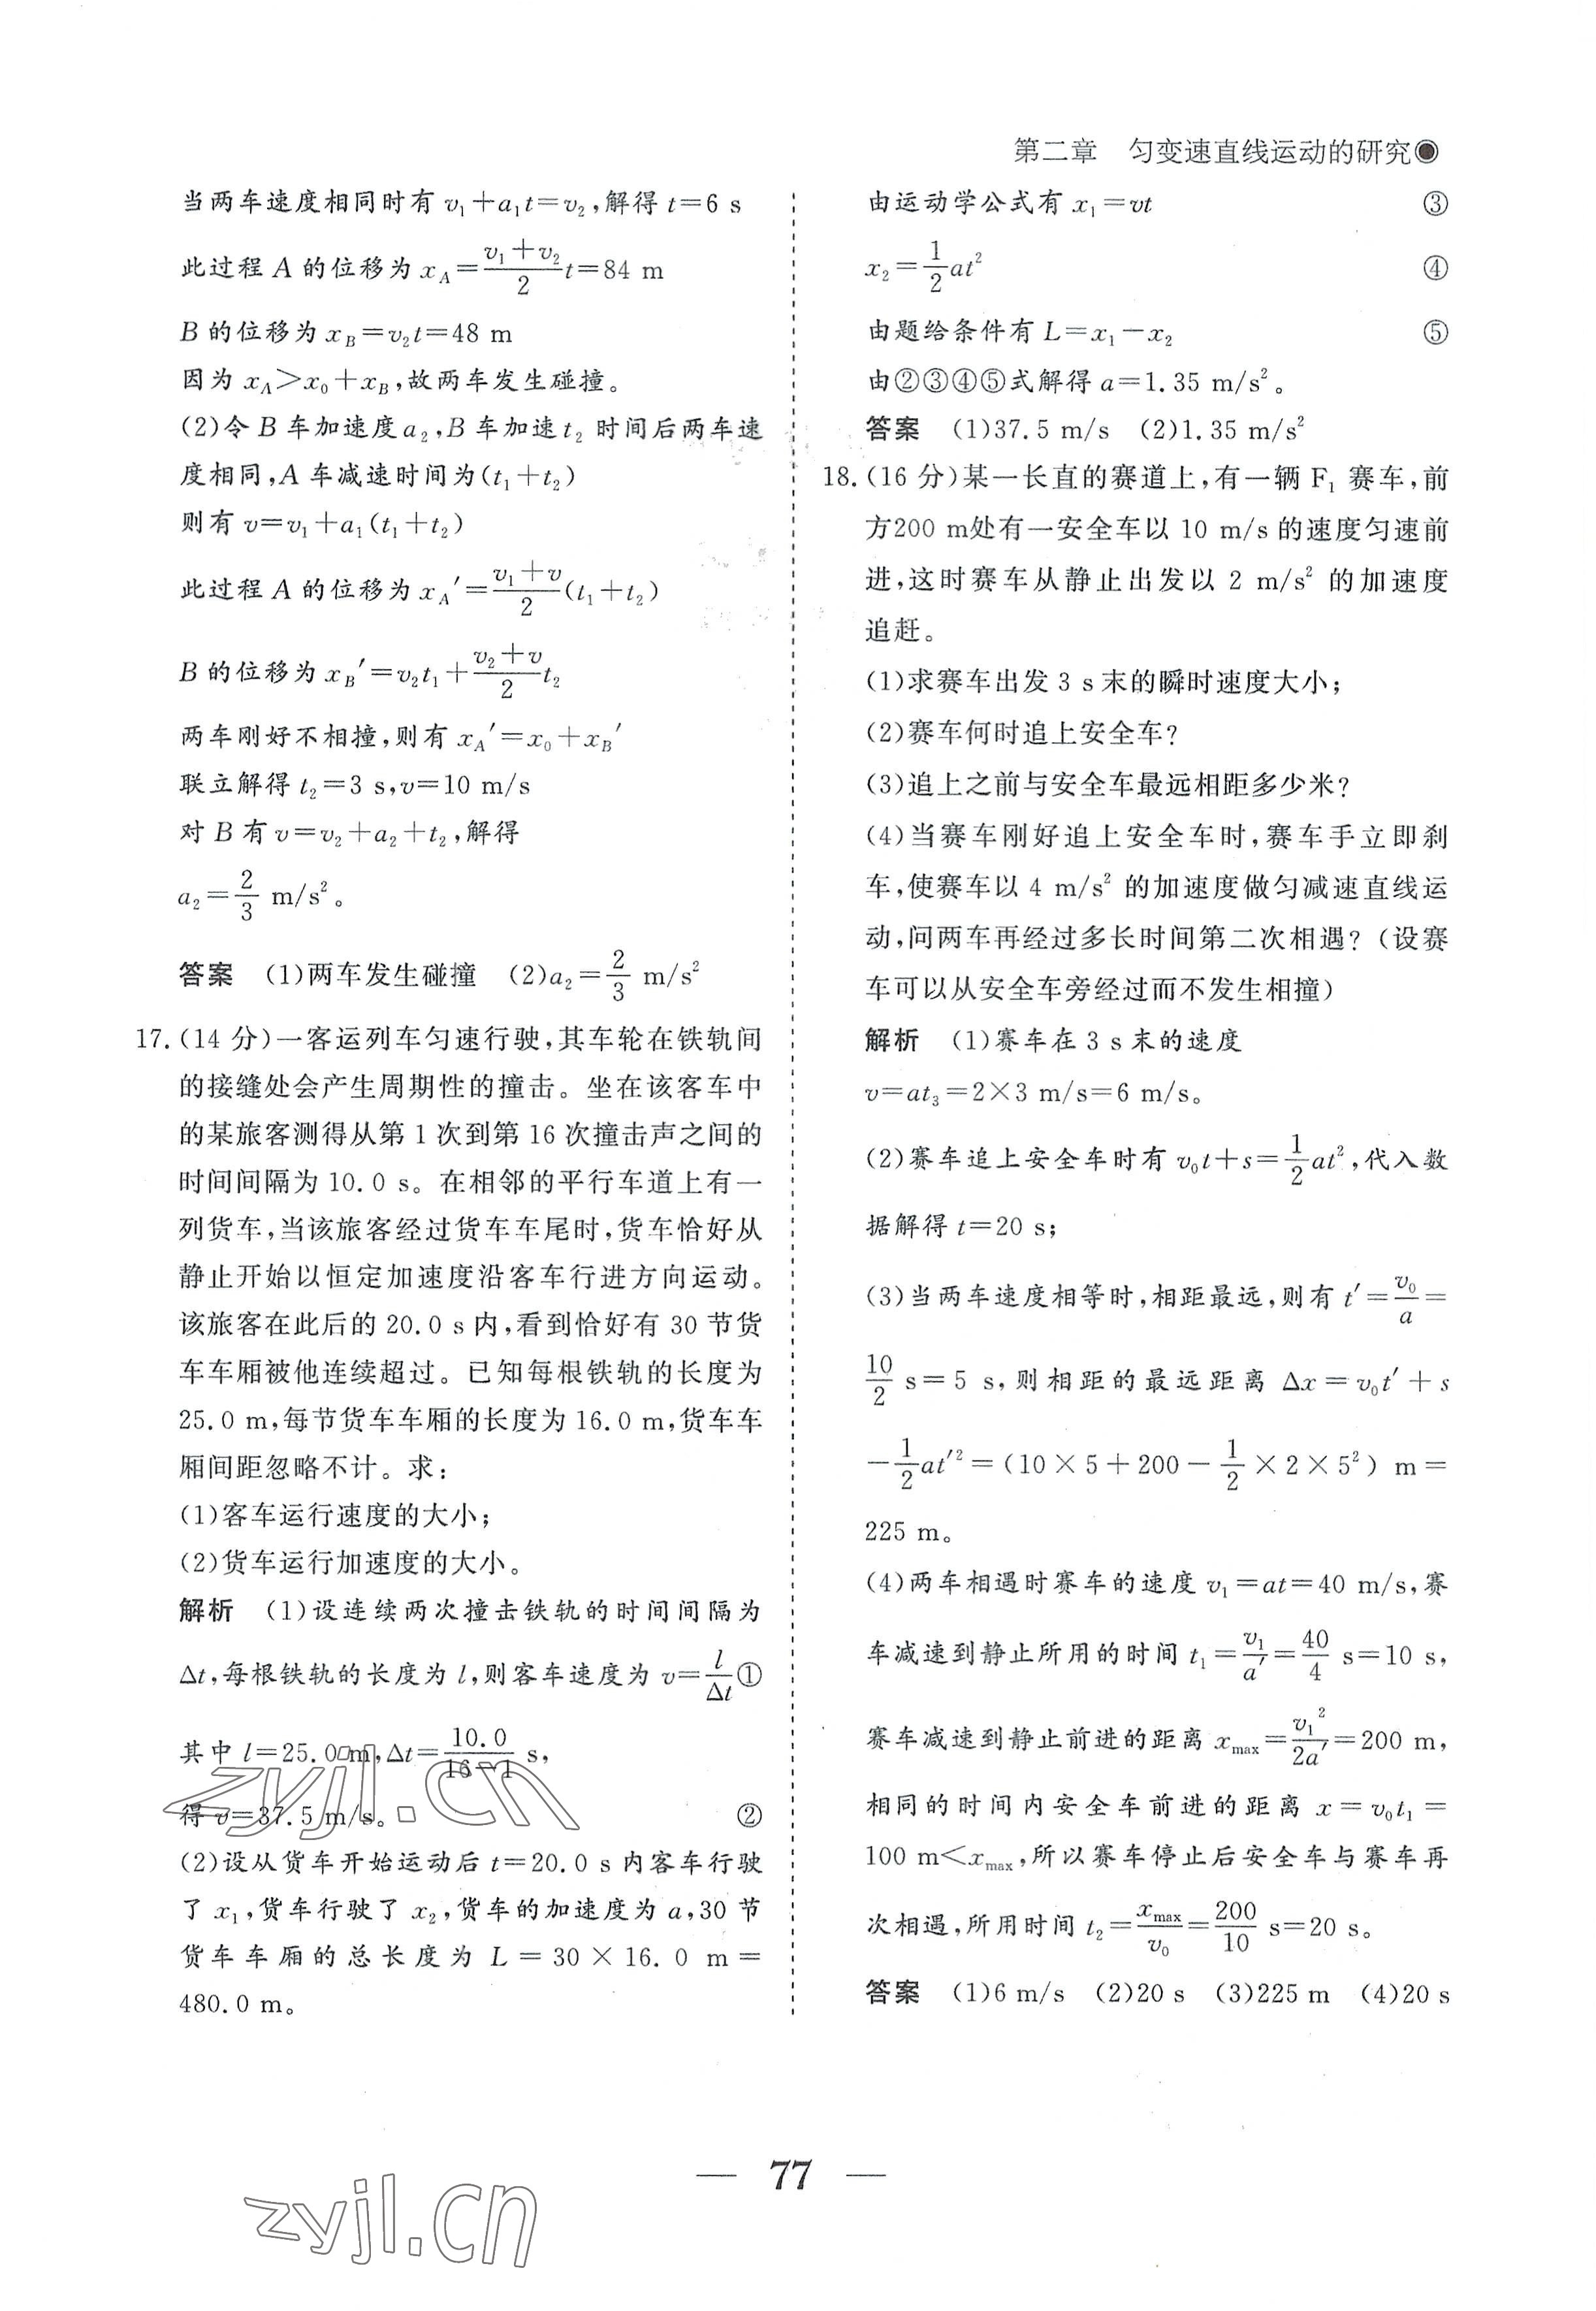 第二章 匀变速直线运动的研究
当两车速度相同时有 v₁+a₁t=v₂,解得 t=6 s
此过程 A 的位移为 x_A=\frac{v₁+v₂}{2}t=84 m
B 的位移为 x_B=v₂t=48 m
因为 x_A>x₀+x_B,故两车发生碰撞。
(2)令 B 车加速度 a₂,B 车加速 t₂ 时间后两车速
度相同,A 车减速时间为(t₁+t₂)
则有 v=v₁+a₁(t₁+t₂)
此过程 A 的位移为 x_A′=\frac{v₁+v}{2}(t₁+t₂)
B 的位移为 x_B′=v₂t₁+\frac{v₂+v}{2}t₂
两车刚好不相撞,则有 x_A′=x₀+x_B′
联立解得 t₂=3 s,v=10 m/s
对 B 有 v=v₂+a₂+t₂,解得
a₂=\frac{2}{3} m/s²。
答案 (1)两车发生碰撞 (2)a₂=\frac{2}{3} m/s²
17.(14 分)一客运列车匀速行驶,其车轮在铁轨间
的接缝处会产生周期性的撞击。坐在该客车中
的某旅客测得从第 1 次到第 16 次撞击声之间的
时间间隔为 10.0 s。在相邻的平行车道上有一
列货车,当该旅客经过货车车尾时,货车恰好从
静止开始以恒定加速度沿客车行进方向运动。
该旅客在此后的 20.0 s 内,看到恰好有 30 节货
车车厢被他连续超过。已知每根铁轨的长度为
25.0 m,每节货车车厢的长度为 16.0 m,货车车
厢间距忽略不计。求:
(1)客车运行速度的大小;
(2)货车运行加速度的大小。
解析 (1)设连续两次撞击铁轨的时间间隔为
Δt,每根铁轨的长度为 l,则客车速度为 v=\frac{l}{Δt}①
其中 l=25.0 m,Δt=\frac{10.0}{16-1} s,
得 v=37.5 m/s。 ②
(2)设从货车开始运动后 t=20.0 s 内客车行驶
了 x₁,货车行驶了 x₂,货车的加速度为 a,30 节
货车车厢的总长度为 L=30×16.0 m=
480.0 m。
由运动学公式有 x₁=vt ③
x₂=\frac{1}{2}at² ④
由题给条件有 L=x₁-x₂ ⑤
由②③④⑤式解得 a=1.35 m/s²。
答案 (1)37.5 m/s (2)1.35 m/s²
18.(16 分)某一长直的赛道上,有一辆 F₁ 赛车,前
方200 m处有一安全车以 10 m/s 的速度匀速前
进,这时赛车从静止出发以 2 m/s² 的加速度
追赶。
(1)求赛车出发 3 s 末的瞬时速度大小;
(2)赛车何时追上安全车?
(3)追上之前与安全车最远相距多少米?
(4)当赛车刚好追上安全车时,赛车手立即刹
车,使赛车以 4 m/s² 的加速度做匀减速直线运
动,问两车再经过多长时间第二次相遇?(设赛
车可以从安全车旁经过而不发生相撞)
解析 (1)赛车在 3 s 末的速度
v=at₃=2×3 m/s=6 m/s。
(2)赛车追上安全车时有 v₀t+s=\frac{1}{2}at²,代入数
据解得 t=20 s;
(3)当两车速度相等时,相距最远,则有 t′=\frac{v₀}{a}=
\frac{10}{2} s=5 s,则相距的最远距离 Δx=v₀t′+s
-\frac{1}{2}at′²=(10×5+200-\frac{1}{2}×2×5²) m=
225 m。
(4)两车相遇时赛车的速度 v₁=at=40 m/s,赛
车减速到静止所用的时间 t₁=\frac{v₁}{a′}=\frac{40}{4} s=10 s,
赛车减速到静止前进的距离 x_max=\frac{v₁²}{2a′}=200 m,
相同的时间内安全车前进的距离 x=v₀t₁=
100 m<x_max,所以赛车停止后安全车与赛车再
次相遇,所用时间 t₂=\frac{x_max}{v₀}=\frac{200}{10} s=20 s。
答案 (1)6 m/s (2)20 s (3)225 m (4)20 s
— 77 —
zyjl.cn
zyjl.cn